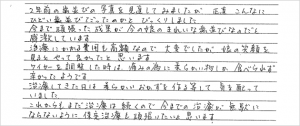 2年前の歯並びの写真を見返してみましたが 正直 こんなに
ひどい歯並びだったのかと びっくりしました
今まで頑張った成果が今の娘のきれいな歯並びなんだと
感激しています
治療にかかる費用も高額なので 大変でしたが 娘の笑顔を
見ると やって良かったと思います
ワイヤーを調整した時は 痛みの為に柔らかい物しか 食べられず
辛かったようです
治療してきた日は 柔らかいおかずを作る等して 気を配って
いました
これからもまだ治療は続くので 今までの治療が 無駄に
ならないように 保定も頑張りたいと思います